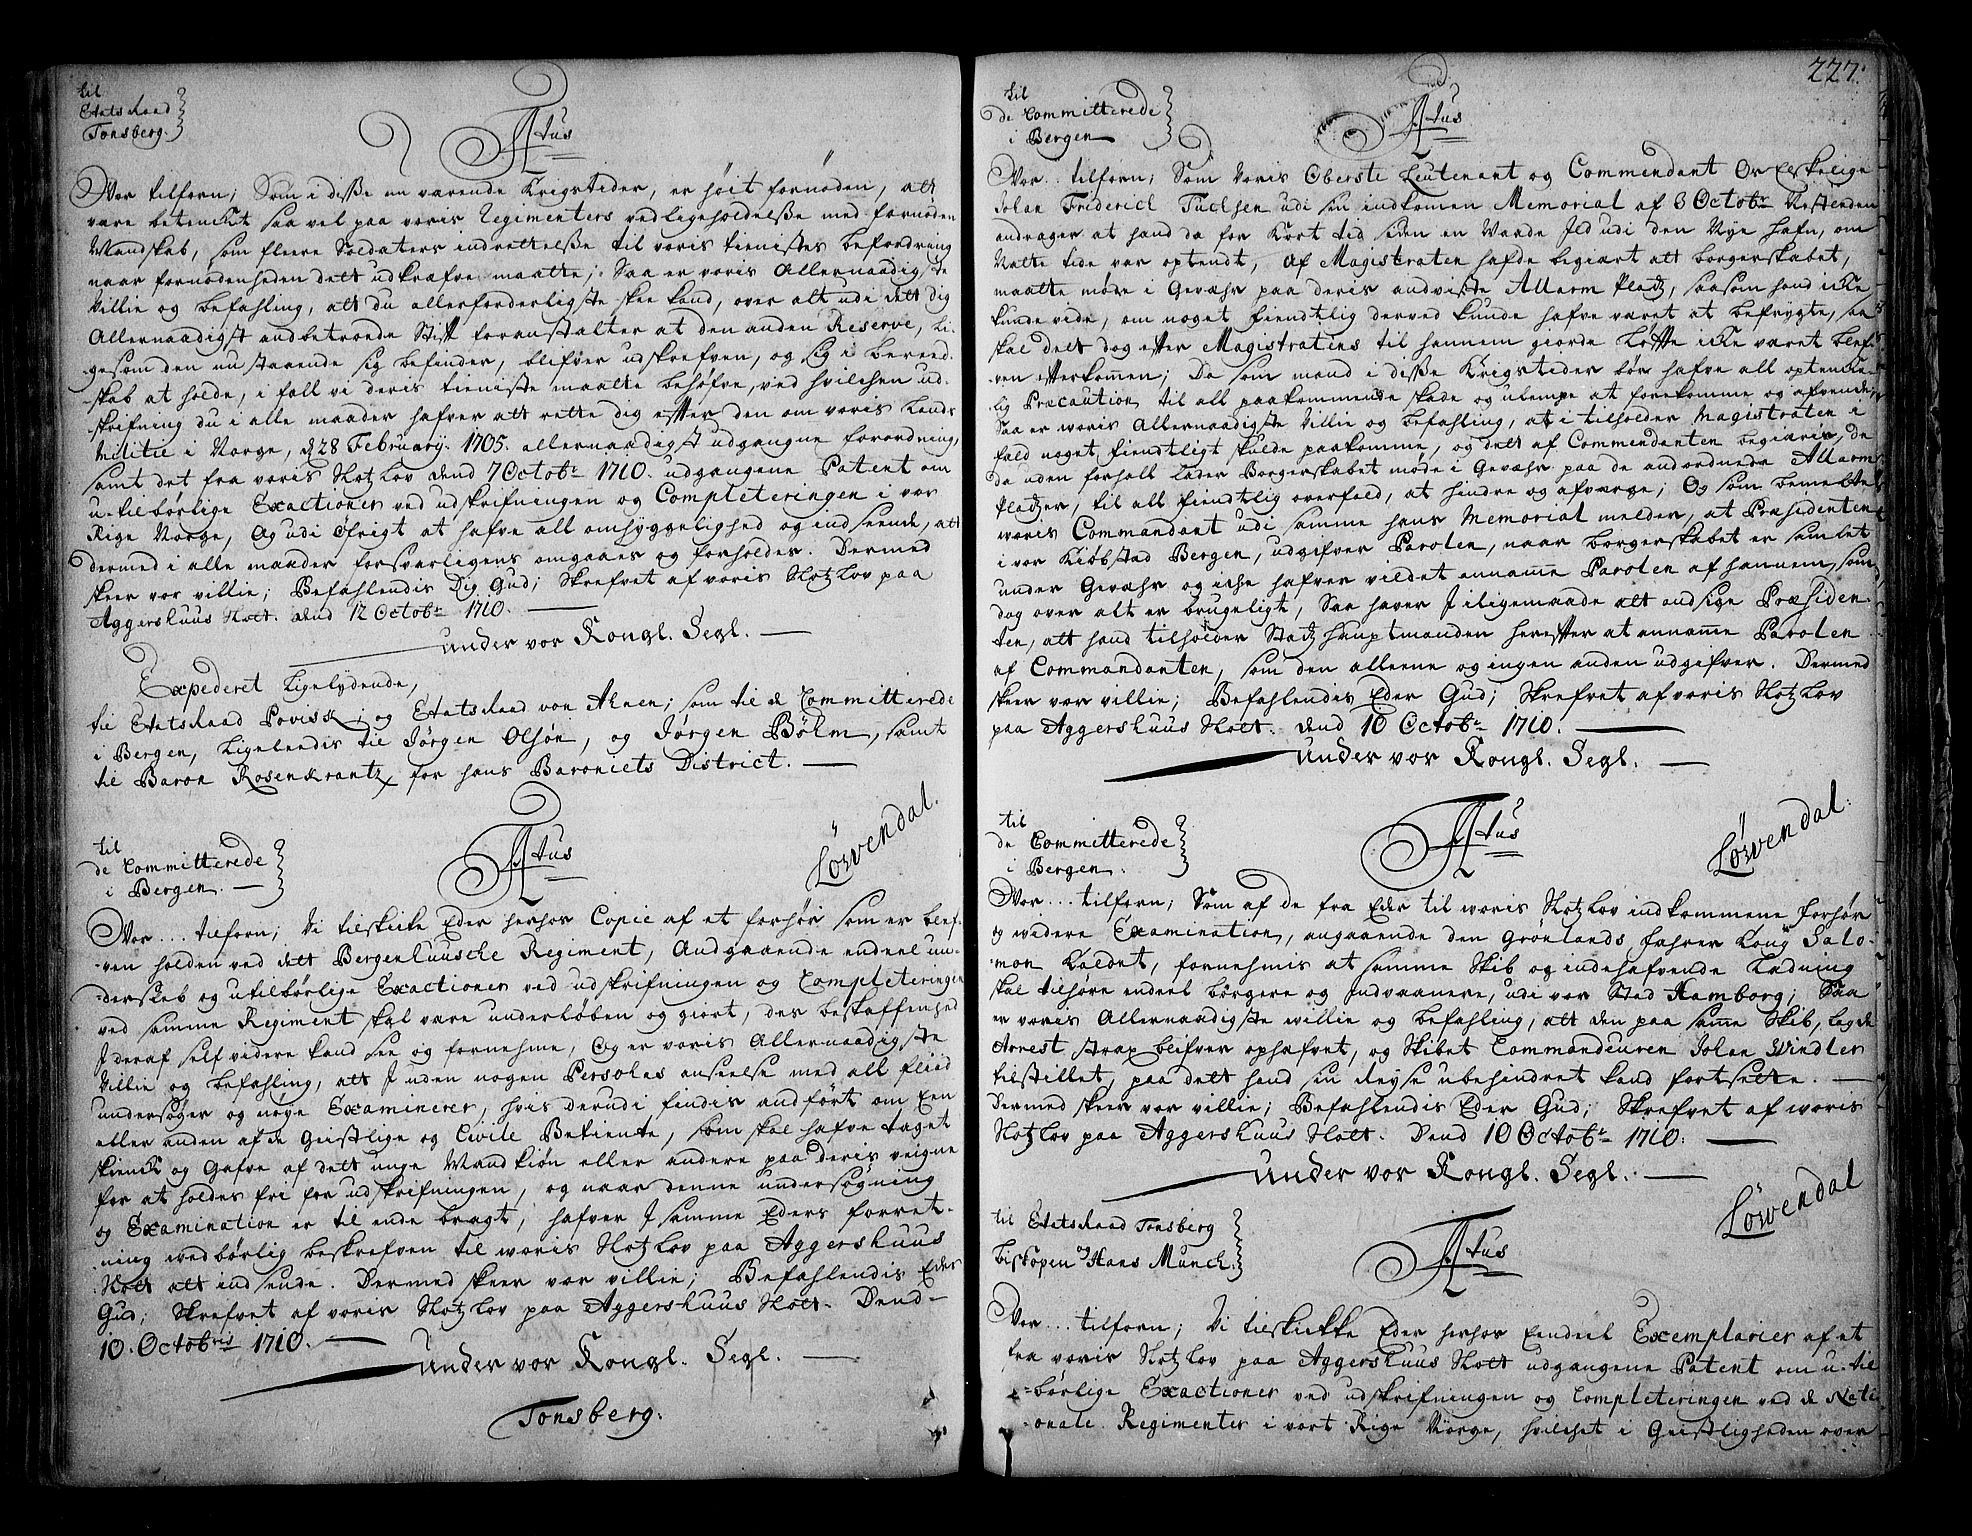 til
Etatsraad
Tonsberg.
F4tus
Vor tilforn; Som i disse nu varende Krigstider, er høit fornøden, att
være betenckt saa vel paa voris Regimenters vedligeholdelse med fornøden
Mandskab, som fleere Soldaters indrettelse til voris tienistes befordring
naar fornødenheden dett udkræfve maatte; Saa er voris Allernaadigste
Villie og befahling, att du allerforderligste skee kand, over alt udi dett dig
Allernaadigst andbetroede Stift foranstalter at den anden Reserve, li-
gesom den nu staaende sig befinder, blifver udskrefven, og sig i bereed-
skab at holde, i fall vi deris tieniste maatte behøfve, ved hvilchen ud-
skrifning du i alle maader hafver att rette dig efter den om voris Land
Militie i Norge, d 28 Februarij. 1705. allernaadigst udgangne forordning,
samt det fra voris Slotzlov dend 7 Octobr 1710. udgangene Patent om
u-tilbørlige Exactioner ved udskrifningen og Completeringen i vor
Rige Norge, Og udi øfrigt at hafve all omhyggelighed og indseende, att
dermed i alle maader forsvarligens omgaaes og forholdes. Dermed
skeer vor villie; Befahlendis Dig Gud; Skrefvet af voris Slotzlov paa
Aggershuus Slott. dend 12 Octobr 1710.
under vor Kongl. Segl.
Expederet Ligelydende,
til Etatsraad Povisk, og Etatsraad von Ahnen; som til de Committerede
i Bergen, Ligelendis til Jørgen Olsøn, og Jørgen Bøhm, samt
til Baron Rosenkrantz for hans Baroniets District.
Løwendal.
til
de Committerede
i Bergen.
Atus
Vor... tilforn; Vi tilskicke Eder herhos Copie af et forhør som er blef-
ven holden ved dett Bergenhuusche Regiment, Andgaaende endeel un-
derslæb og utilbørlige Exactioner ved udskrifningen og Completeringen
ved samme Regiment skal være underløben og giort, des beskaffenhed
I deraf self videre kand see og fornehme, Og er voris Allernaadigste
Villie og befahling, att I uden nogen Persohns anseelse med all fliid
undersøger og nøye Examinerer, hvis derudi findis andført om Een
eller anden af de Geistlige og Civile Betiente, som skal hafve taget
skienck og Gafve af dett unge Mandkiøn eller andere paa deris veigne
for at holdes fri for udskrifningen, og naar denne undersøgning
og Examination er til ende bragt, hafver I samme Eders forret-
ning wed børlig beskrefven til woris Slotzlov paa Aggershuus
Slott att indsende. Dermed skeer vor villie; Befahlendis Eder
Gud; Skrefvet af voris Slotzlov paa Aggershuus Slott. Dend
10. Octobris 1710.
Under vor Kongl. Segl.
Tonsberg.
227.
til
de Committerede
i Bergen
Atus
Vor... tilforn; Som Voris Oberste Leutenant og Commendant Os Elskelige
Johan Frederich Tuchsen udi sin indkommen Memorial af 3 Octobr Nestenden
andrager at hand da for kort tid siden en Vaade Ild udi den Nye hafn, om
Natte tide var optendt, af Magistraten hafde begiært att borgerskabet,
maatte møde i Gevæhr paa deris andviste Allarm Platz, saasom hand icke
kunde vide, om noget fiendtlig derved kunde hafve været at befrygte, saa
skal dett dog efter Magistratens til hannem giorde Løfte icke været blef-
ven efterkommen; Da som mand i disse Krigstider bør hafve all optencke-
lig Præcaution til all paakommende skade og ulempe at forekomme og afvende,
Saa er woris Allernaadigste Villie og befahling, at i tilholder Magistraten i
fald noget fiendtligt skulde paakomme, og dett af Commendanten begiæris, de
da uden forhall lader Borgerskabet møde i Gevæhr paa de andordnede Allarm
Platzer, til all fiendtlig overfald, at hindre og afværge; Og som bemelte
woris Commandant udi samme hans Memorial melder, at Præsidenten
i vor Kiøbstad Bergen, udgifver Parolen, naar borgerskabet er samlet
under Gevæhr og iche hafver vildet annamme Parolen af hannem, som
dog over alt er brugeligt, Saa haver I iligemaade att andsige Præsiden-
ten, att hand tilholder Statz hauptmanden herefter at annamme Parolen
af Commandanten, som den alleene og ingen anden udgifver. Dermed
skeer vor villie; Befahlendis Eder Gud; Skrefvet af voris Slotzlov
paa Aggershuus Slott. dend 10 Octobr 1710.
Under vor Kongl. Segl.
Løvendal.
til
de Committerede
i Bergen.
Atus
Vor... tilforn; Som af de fra Eder til woris Slotzlov indkommene forhør
og widere Examination, angaaende den Grønlands fahrer Kong Salo-
mon kaldet, fornehmis at samme Skib og indehafvende Ladning
skal tilhøre endeel borgere og Indvaanere, udi vor Stad Hamborg; Saa
er voris Allernaadigste willie og befahling, att den paa samme Skib, lagde
Arrest strax blifver ophafvet, og Skibet Commandeuren Johan Windler
tilstillet, paa dett hand sin Reyse ubehindret kand fortsette.
Dermed skeer vor villie; Befahlendis Eder Gud; Skrefvet af woris
Slotzlov paa Aggershuus Slott. Dend 10 Octobr 1710.
Under vor Kongl. Segl.
Løwendal
til Etatsraad Tonsberg
biskopen og Hans Munch.
Atus
Vor... tilforn; Vi tilskikke Eder herhos Eendeel Exemplarier af et
fra voris Slotzlov paa Aggershuus Slott udgangene Patent om u-til
børlige Exactioner ved udskrifningen og Completeringen ved de Nati-
onale Regimenter i vort Rige Norge, hvilchet i Geistligheden over